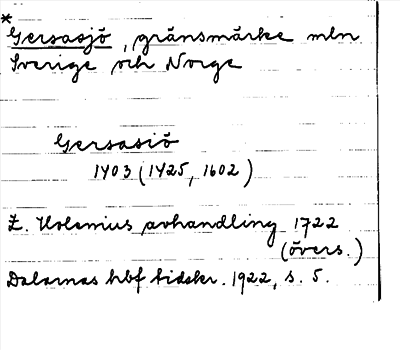 *
Gersasjö, gränsmärke mln
Sverige och Norge
Gersasiö
1403 (1425, 1602)
E. Holenius avhandling 1722
(övers.)
Dalarnas hbf tidskr. 1922, s. 5.